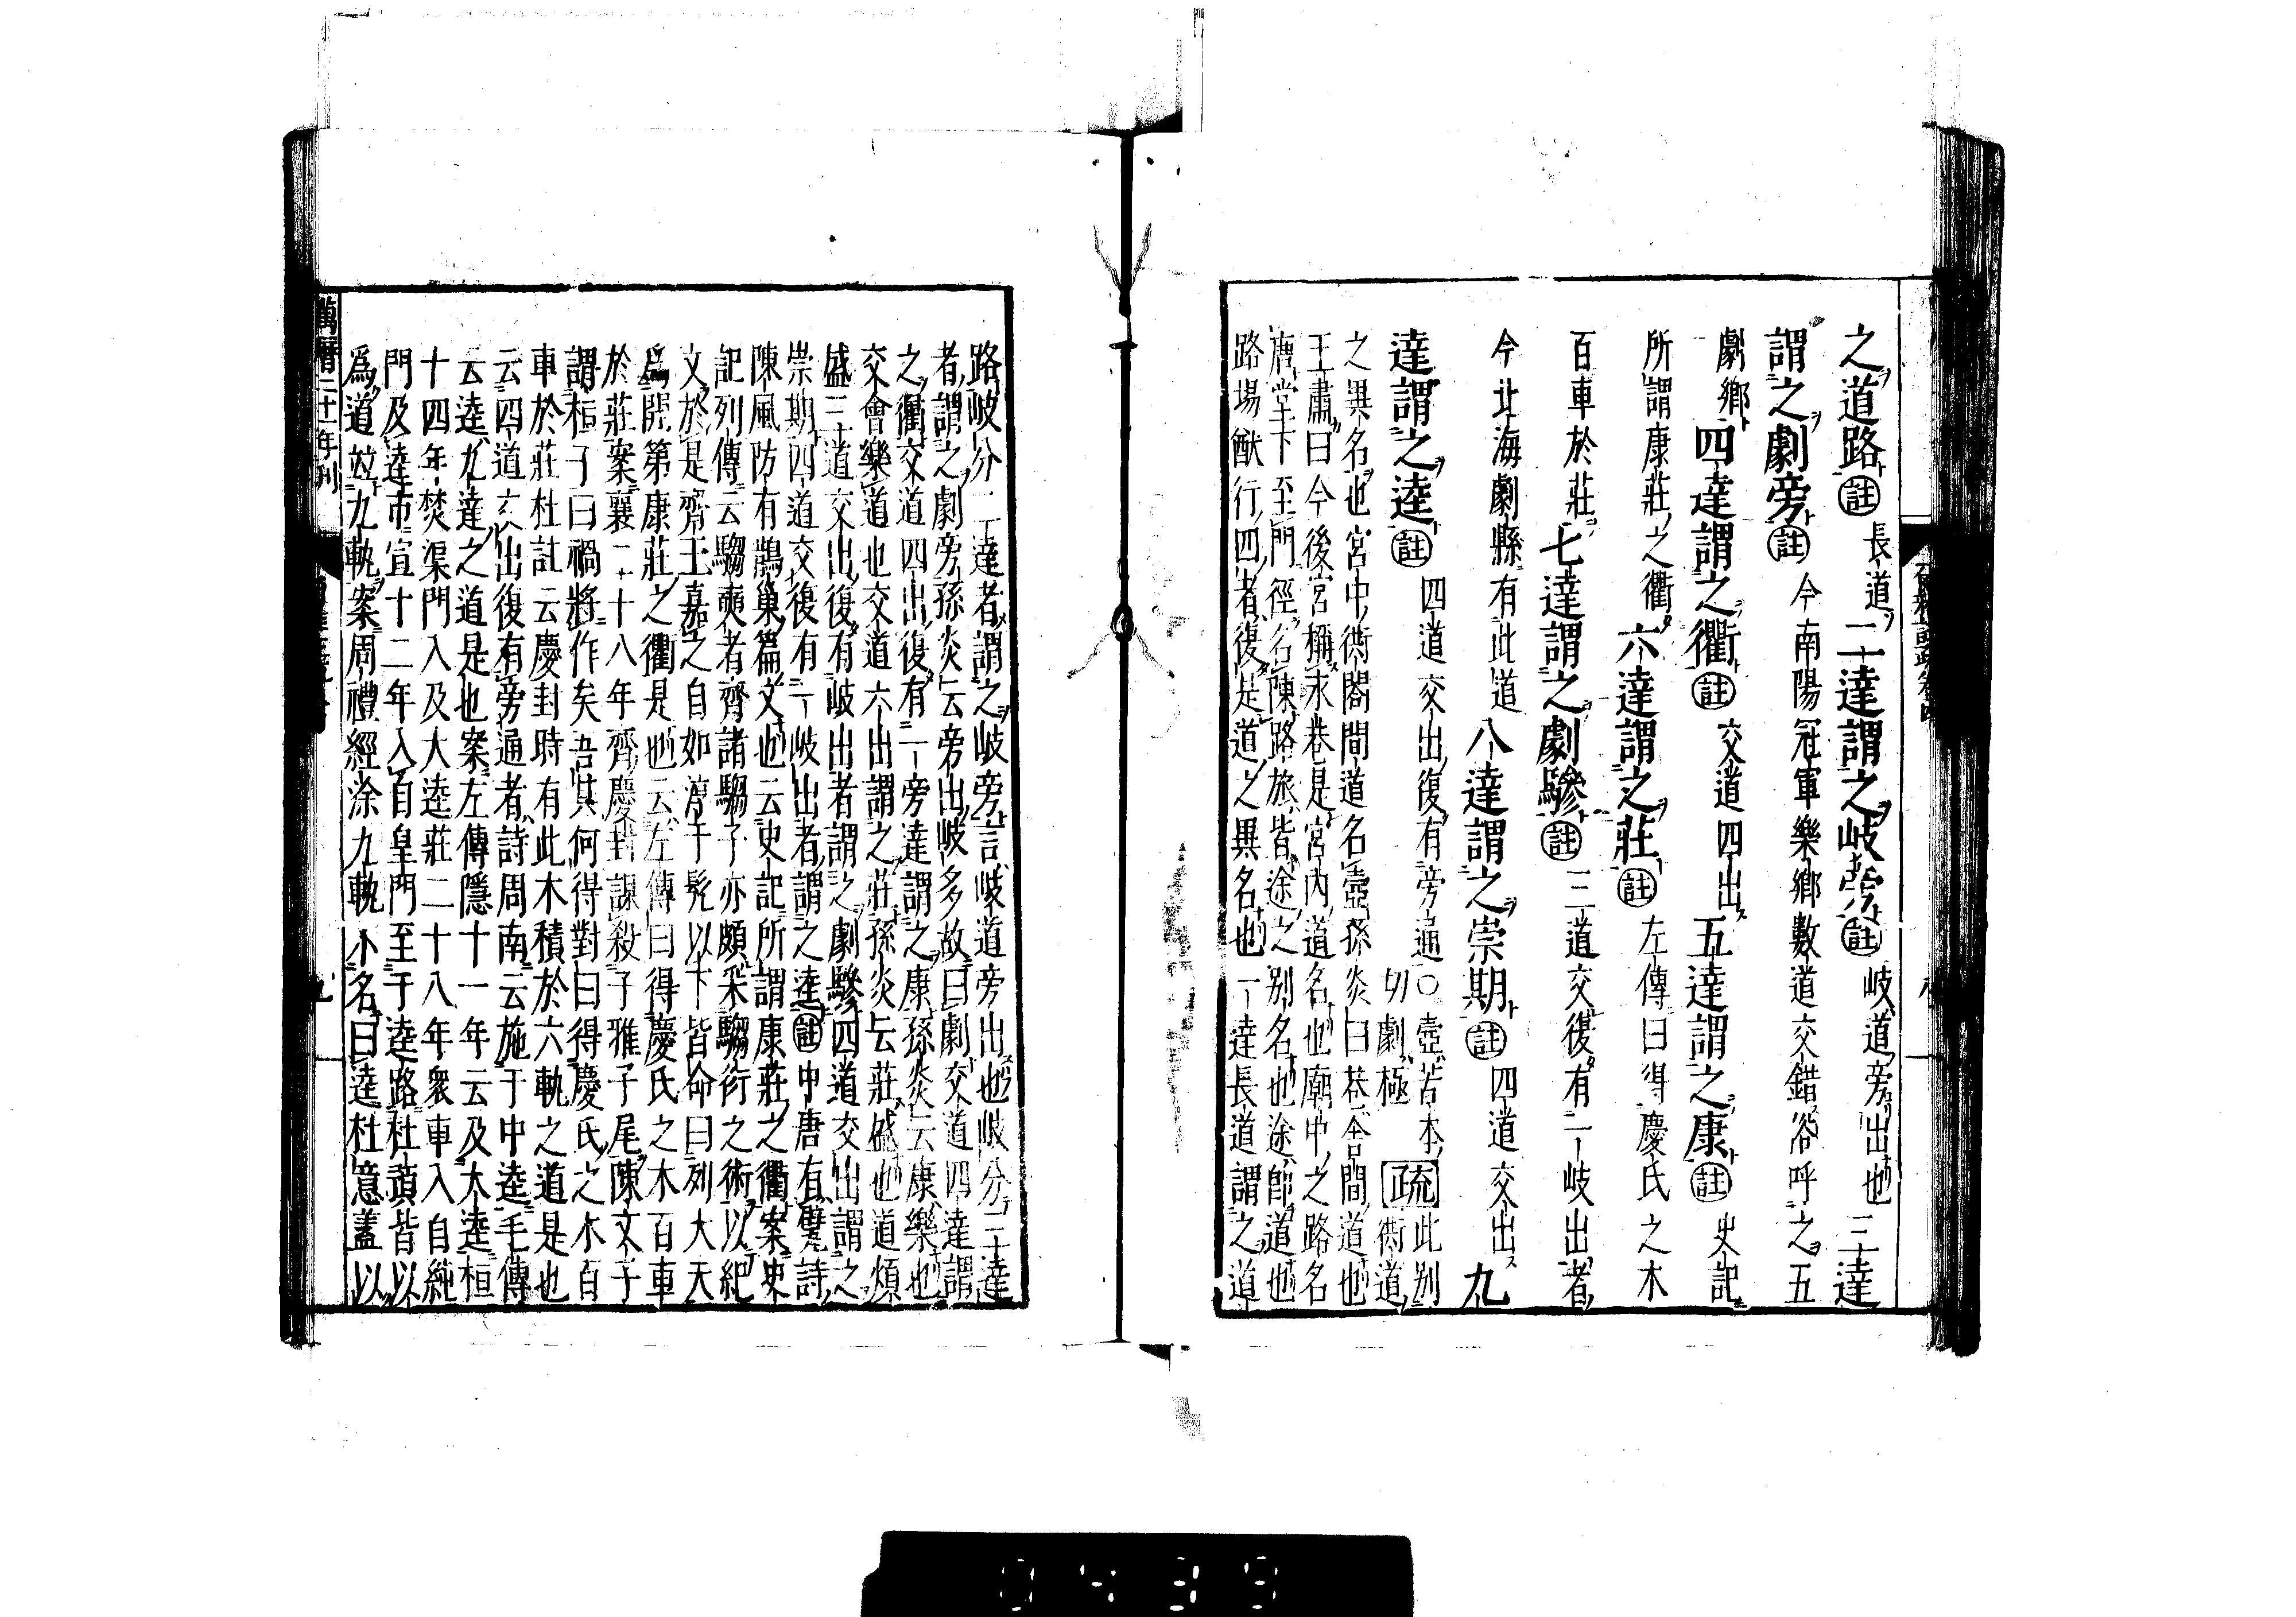 之道路註長道二達謂之岐旁註岐道旁出也三達
謂之劇旁註今南陽冠軍樂鄉數道交錯俗呼之五
劇鄉四達謂之衢註交道四出五達謂之康註史記
所謂康莊之衢六達謂之莊註左傳曰得慶氏之木
百車於莊七達謂之劇驂註三道交復有一岐出者
今北海劇縣有此道八達謂之崇期註四道交出九
達謂之逵註四道交出復有旁通○壼苦本切劇極疏此別衖道
之異名也宮中衖閤間道名壼孫炎曰巷舍間道也
王肅曰今後宮稱永巷是宮內道名也廟中之路名
唐堂下至門徑名陳路旅皆途之別名也途即道也
路場猷行四者復是道之異名也一達長道謂之道
路岐分二達者謂之岐旁言岐道旁出也岐分三達
者謂之劇旁孫炎云旁出岐多故曰劇交道四達謂
之衢交道四出復有一旁達謂之康孫炎云康樂也
交會樂道也交道六出謂之莊孫炎云莊盛也道煩
盛三道交出復有岐出者謂之劇驂四道交出謂之
崇期四道交復有一岐出者謂之逵註中唐有甓詩
陳風防有鵲巢篇文也云史記所謂康莊之衢案史
記列傳云騶奭者齊諸騶子亦頗采騶衍之術以紀
文於是齊王嘉之自如淳于髡以下皆命曰列大夫
爲開第康莊之衢是也云左傳曰得慶氏之木百車
於莊案襄二十八年齊慶封謀殺子雅子尾陳文子
謂桓子曰禍將作矣吾其何得對曰得慶氏之木百
車於莊杜註云慶封時有此木積於六軌之道是也
云四道交出復有旁通者詩周南云施于中逵毛傳
云逵九達之道是也案左傳隱十一年云及大逵桓
十四年焚渠門入及大逵莊二十八年衆車入自純
門及逵市宣十二年入自皇門至于逵路杜預皆以
爲道竝九軌案周禮經涂九軌不名曰逵杜意蓋以
萬曆二十一年刊
九